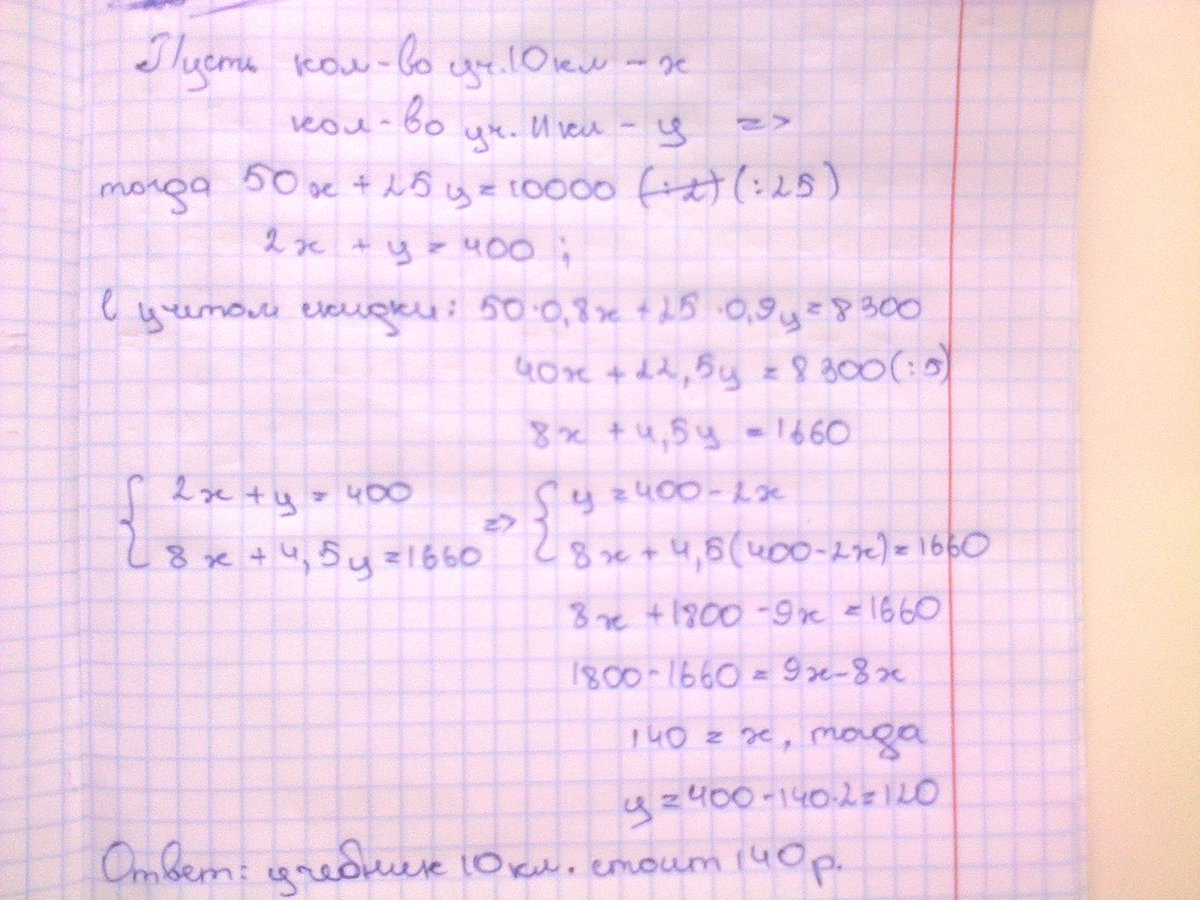 Пусть кол-во уч. 10 кл - x
кол-во уч. 11 кл - y =>
тогда 50x + 25y = 10000 (:2) (:25)
2x + y = 400 ;
С учитом скидки: 50·0,8x + 25·0,9y = 8300
40x + 22,5y = 8300 (:5)
8x + 4,5y = 1660
{ 2x + y = 400 => { y = 400 - 2x
8x + 4,5y = 1660 8x + 4,5(400-2x) = 1660
8x + 1800 - 9x = 1660
1800 - 1660 = 9x - 8x
140 = x, тогда
y = 400 - 140·2 = 120
Ответ: учебник 10 кл. стоит 140 р.